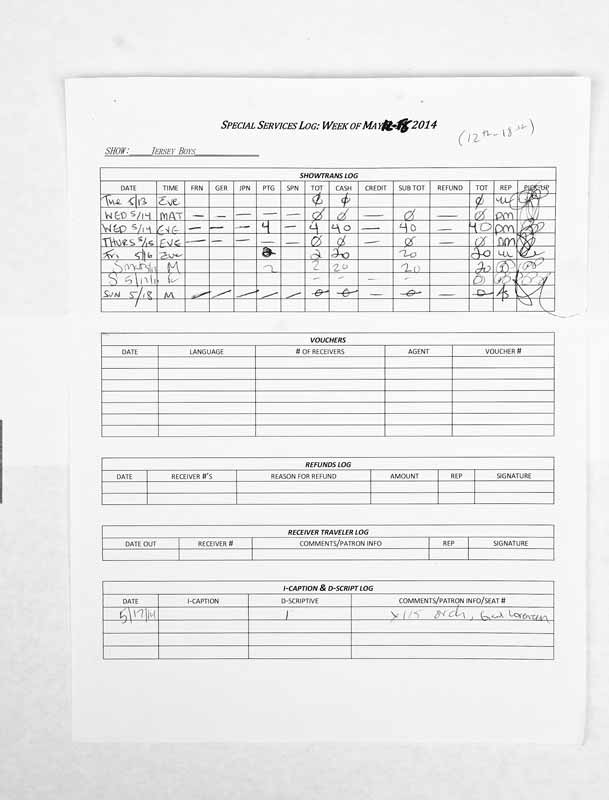 SPECIAL SERVICES LOG: WEEK OF MAY 12-18 2014
(12th-18th)
SHOW: JERSEY BOYS
SHOWTRANS LOG
DATE TIME FRN GER JPN PTG SPN TOT CASH CREDIT SUB TOT REFUND TOT REP PICK UP
Tue 5/13 Eve Ø Ø Ø
WED 5/14 MAT — — — — — Ø Ø — Ø — Ø DM
WED 5/14 EVE — — — 4 — 4 40 — 40 — 40 DM
THURS 5/15 EVE — — — — — Ø Ø — Ø — Ø DM
Fri 5/16 Eve 2 2 20 20 20
M 2 2 20 20 20
S 5/17/14 - - - 0
SUN 5/18 M — — — — — Ø Ø — Ø — Ø
VOUCHERS
DATE LANGUAGE # OF RECEIVERS AGENT VOUCHER #
REFUNDS LOG
DATE RECEIVER #'S REASON FOR REFUND AMOUNT REP SIGNATURE
RECEIVER TRAVELER LOG
DATE OUT RECEIVER # COMMENTS/PATRON INFO REP SIGNATURE
I-CAPTION & D-SCRIPT LOG
DATE I-CAPTION D-SCRIPTIVE COMMENTS/PATRON INFO/SEAT #
5/17/14 1 115 orch,